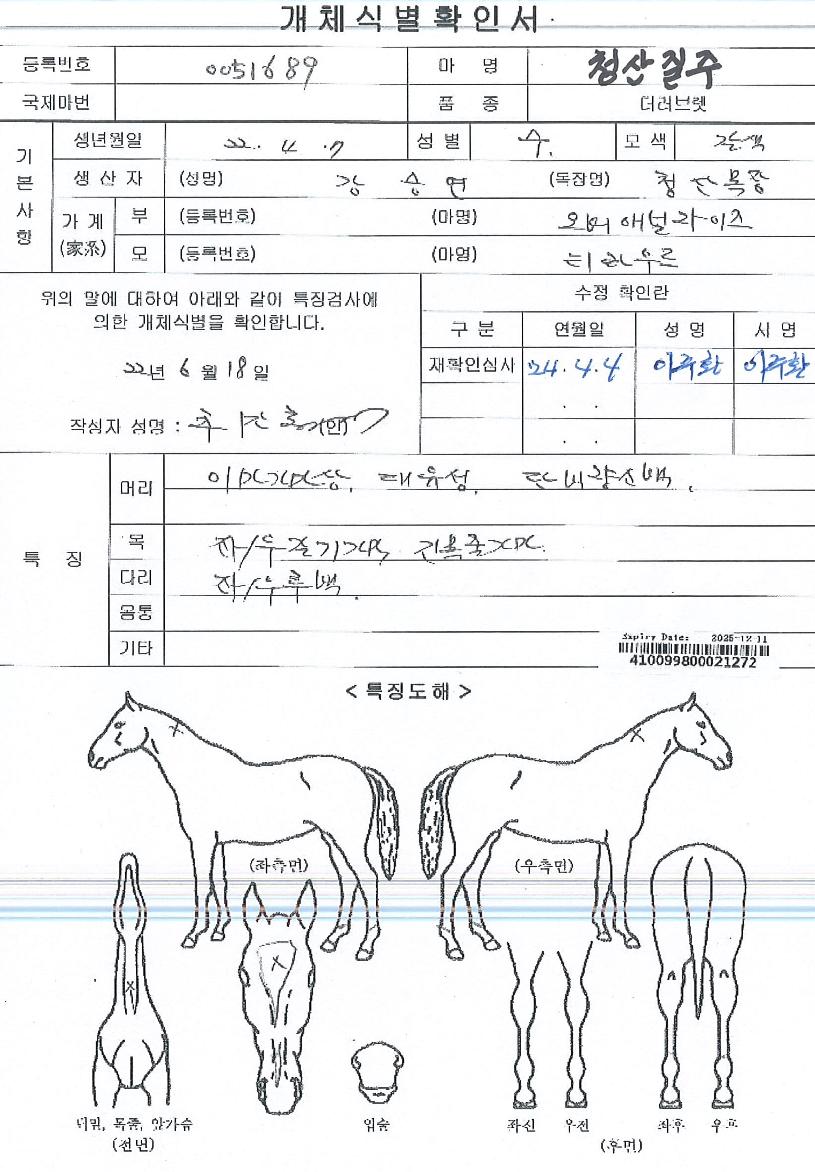 개체식별확인서
등록번호 0051689 마 명 청산질주
국제마번 품 종 더러브렛
기본사항
생년월일 22. 4. 7 성별 수. 모색 갈색
생산자 (성명) 강승연 (목장명) 청산목장
가계(家系) 부 (등록번호) (마명) 오버애널라이즈
모 (등록번호) (마명)
위의 말에 대하여 아래와 같이 특징검사에
의한 개체식별을 확인합니다.
22년 6월 18일
작성자 성명 : (인)
수정 확인란
구분 연월일 성명 서명
재확인심사 24.4.4 이주환 이주환
. .
. .
특 징
머리 이마가마상, 대유성,
목 좌/우 갈기가마, 긴목중가마.
다리 좌/우후백.
몸통
기타
Expiry Date: 2025-12-11
410099800021272
< 특징도해 >
(좌측면) (우측면)
턱밑, 목줄, 앞가슴
(전면)
입술
좌전 우전 좌후 우후
(후면)